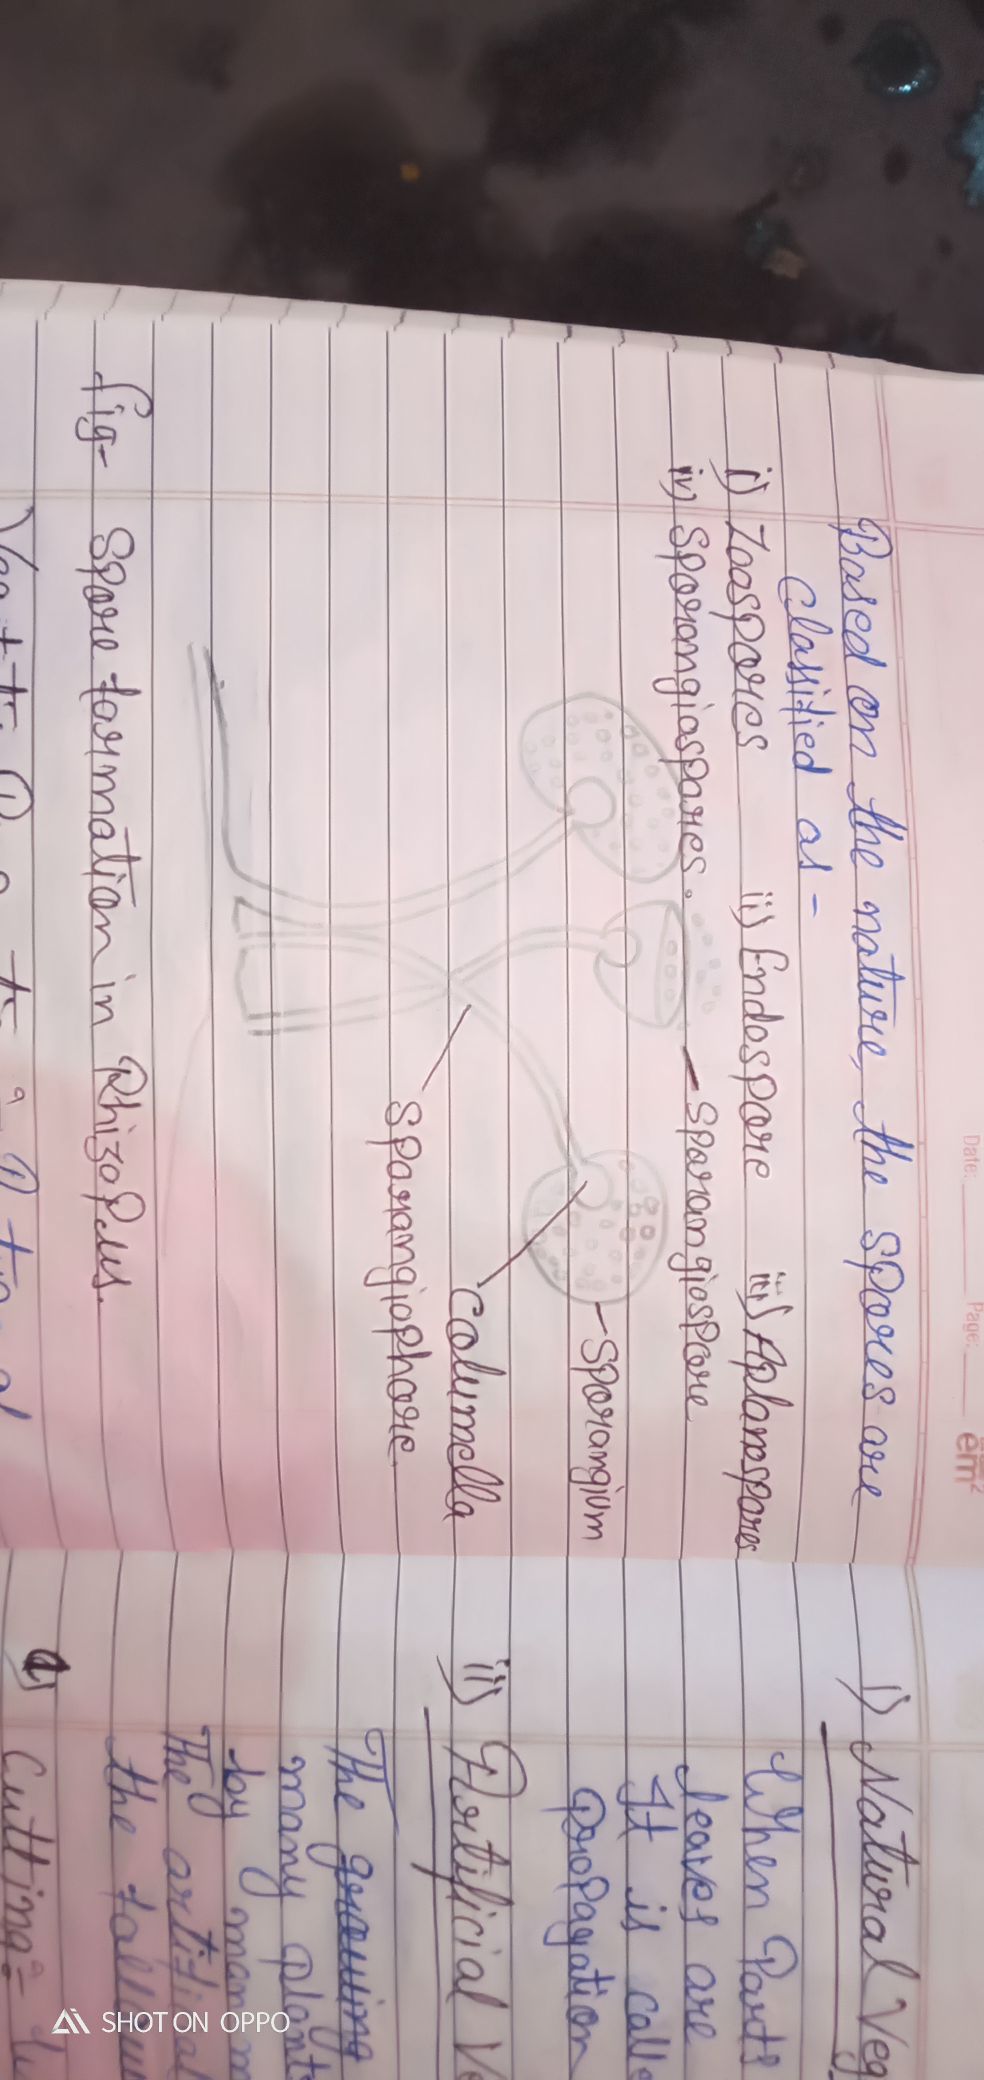 Date: Page: em²
Based on the nature, the spores are
classified as -
i) Zoospores ii) Endospore iii) Aplanospores
iv) Sporangiospores.
Sporangiospore
Sporangium
Columella
Sporangiophore
fig- Spore formation in Rhizopus.
i) Natural Veg
When Parts
leaves are
It is calle
Propagation
ii) Artificial Ve
The growing
many plant
by man m
The artificial
the follow
a) Cutting:-
SHOT ON OPPO